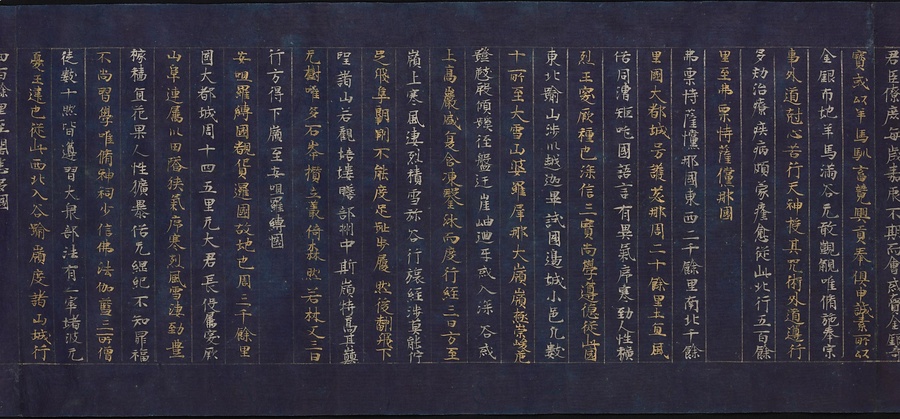 君臣僚庶每歲嘉辰不期而會或賷金銀奇
寶或以羊馬馴畜競興貢奉俱申誠素所以
金銀布地羊馬滿谷无敢覬覦唯脩施奉宗
事外道剋心苦行天神授其咒術外道遵行
多効治療疾病頗蒙痊愈從此北行五百餘
里至弗栗恃薩儻那國
弗栗恃薩儻那國東西二千餘里南北千餘
里國大都城号護苾那周二十餘里土宜風
俗同漕矩吒國語言有異氣序寒勁人性獷
烈王突厥種也深信三寶尚學遵德從此國
東北踰山涉川越迦畢試國邊城小邑凡數
十所至大雪山婆羅犀那大嶺嶺極崇峻危
隥攲傾蹊徑盤迂巖岫迴互或入深谷或
上高巖盛夏合凍鑿氷而度行經三日方至
嶺上寒風淒烈積雪弥谷行旅經涉莫能佇
足飛隼翺翔不能度足趾步履然後翻飛下
望諸山若觀培塿贍部洲中斯嶺特高其巔
无樹唯多石峯攢立叢倚森然若林又三日
行方得下嶺至安呾羅縛國
安呾羅縛國覩貨邏國故地也周三千餘里
國大都城周十四五里无大君長役屬突厥
山阜連屬川田隘狹氣序寒烈風雪淒勁豊
稼穡宜花果人性獷暴俗无綱紀不知罪福
不尚習學唯脩神祠少信佛法伽藍三所僧
徒數十然皆遵習大衆部法有一窣堵波无
憂王建也從此西北入谷踰嶺度諸山城行
四百餘里至闊悉多國